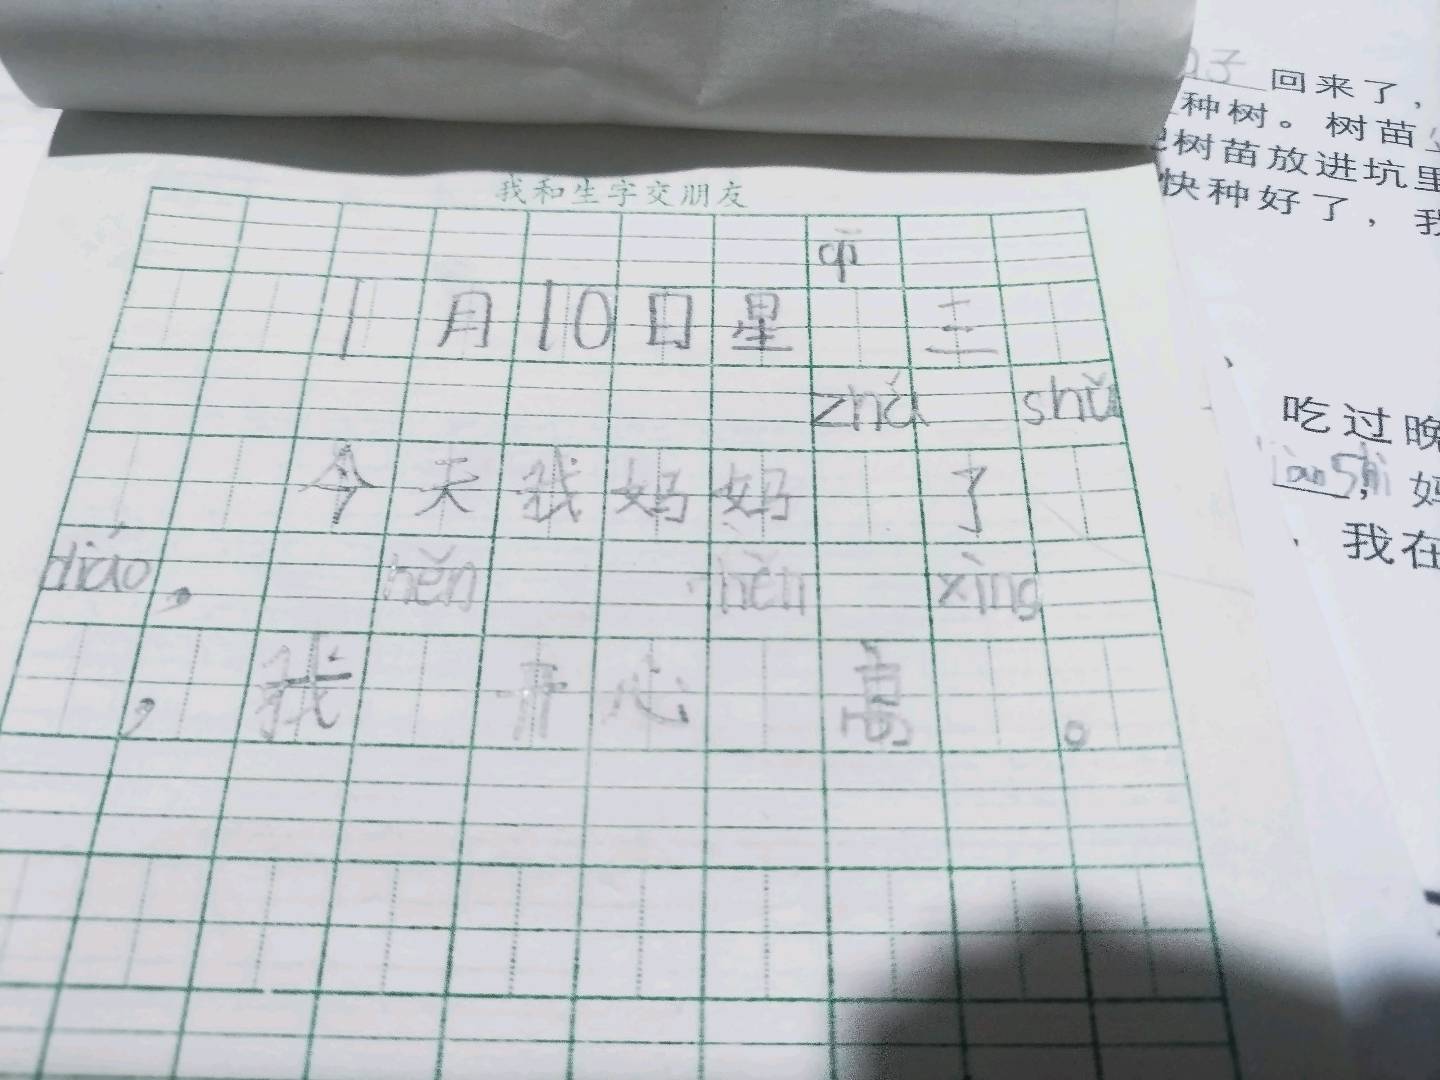 我和生字交朋友
qī
1月10日星 三
zhǔ shǔ
今天我妈妈 了
diáo, hěn hěn xìng
,我 开心 高 。
子 回来了,
种树。树苗
树苗放进坑里
快种好了,我
吃过晚
妈
我在